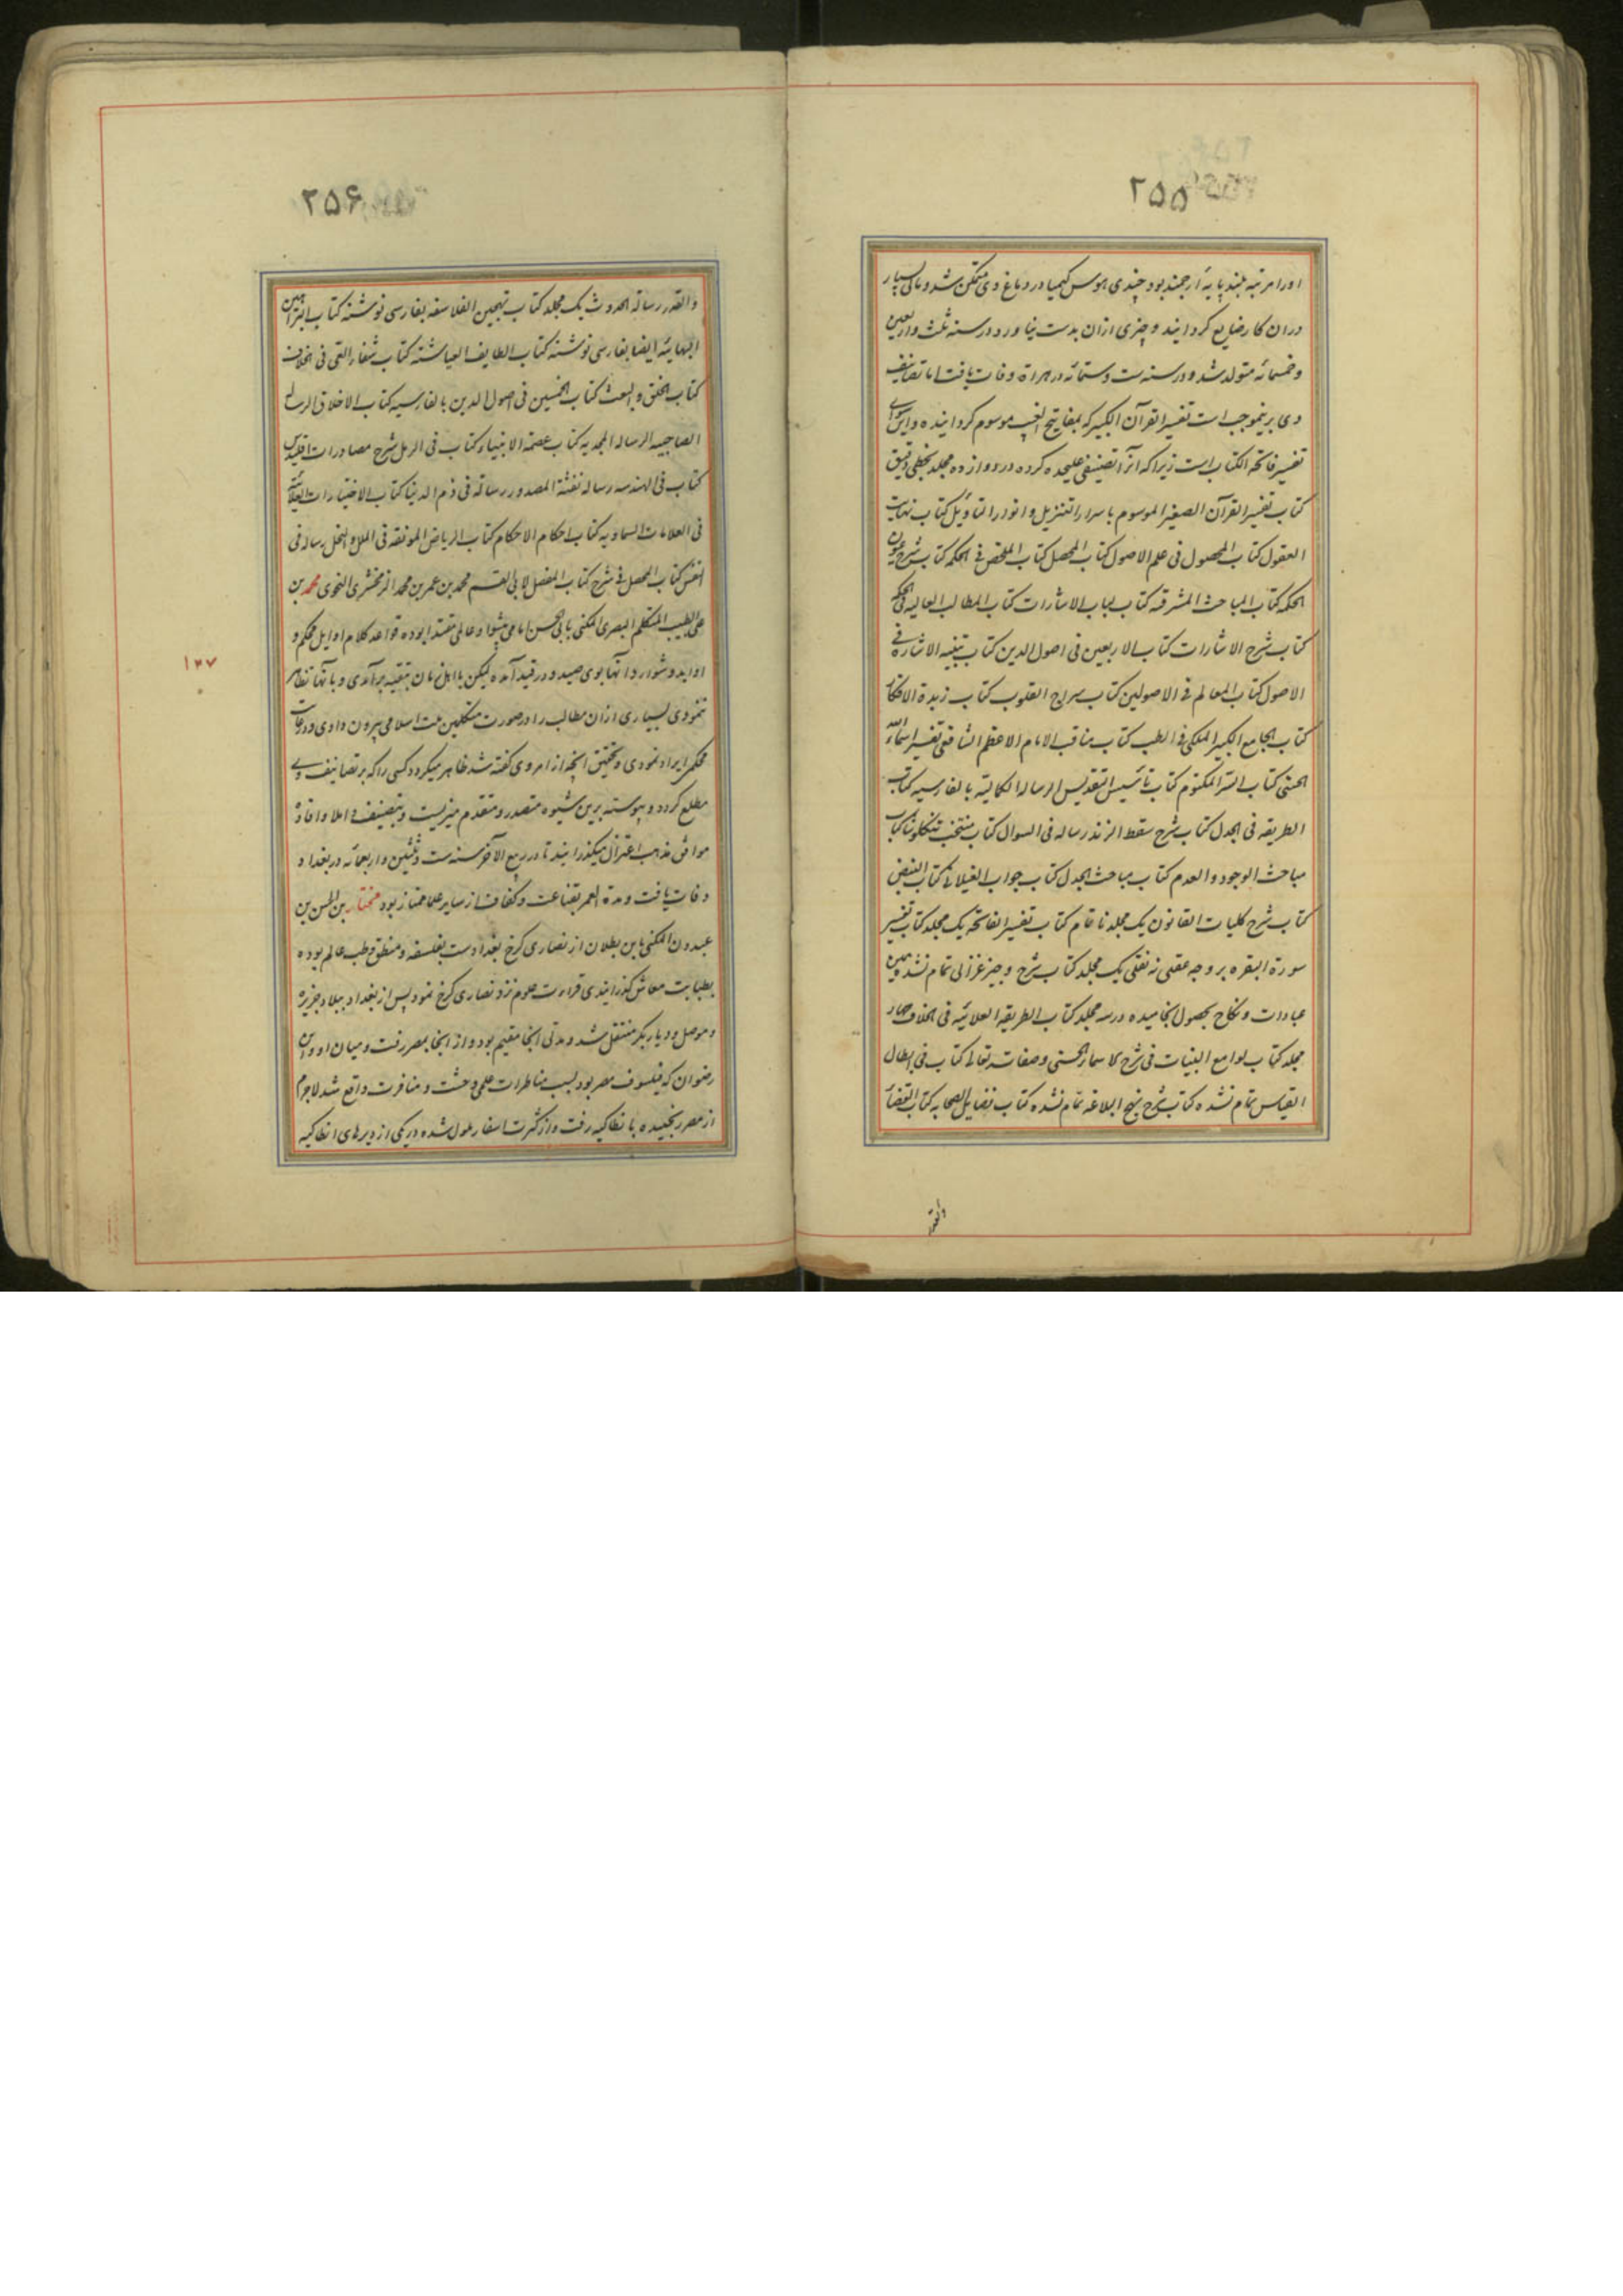 ۲۵۵
او را مرتبه بلند پایهٔ ارجمند بود چندی هوس کیمیا در دماغ وی متمکن شد و مالی بسیار
در آن کار ضایع گردانید و چیزی از آن بدست نیاورد و در سنه ثلث و اربعین
و خمسمائه متولد شد و در سنه ست و ستمائه در هراة وفات یافت اما تصانیف
وی برینموجب است تفسیر القرآن الکبیر که بمفاتیح الغیب موسوم گردانیده و این سوای
تفسیر فاتحة الکتاب است زیرا که آنرا تصنیفی علیحده کرده در دوازده مجلد بخطی دقیق
کتاب تفسیر القرآن الصغیر الموسوم باسرار التنزیل و انوار التاویل کتاب نهایت
العقول کتاب المحصول فی علم الاصول کتاب المحصل کتاب الملخص فی الحکمه کتاب شرح عیون
الحکمه کتاب المباحث المشرقیه کتاب لباب الاشارات کتاب المطالب العالیه فی الحکمه
کتاب شرح الاشارات کتاب الاربعین فی اصول الدین کتاب تنبیه الاشاره فی
الاصول کتاب المعالم فی الاصولین کتاب سراج القلوب کتاب زبدة الافکار
کتاب الجامع الکبیر الملکی فی الطب کتاب مناقب الامام الاعظم الشافعی تفسیر اسماء الله
الحسنی کتاب السر المکتوم کتاب تاسیس التقدیس الرساله الکمالیة بالفارسیه کتاب
الطریقه فی الجدل کتاب شرح سقط الزند رساله فی السوال کتاب منتخب تنکلوشا کتاب
مباحث الوجود و العدم کتاب مباحث الجدل کتاب جواب الغیلانی کتاب النبض
کتاب شرح کلیات القانون یک مجلد ناتمام کتاب تفسیر الفاتحه یک مجلد کتاب تفسیر
سورة البقره بر وجه عقلی نه نقلی یک مجلد کتاب شرح وجیز غزالی تمام نشده همین
عبادات و نکاح بحصول انجامیده در سه مجلد کتاب الطریقه العلائیه فی الخلاف چهار
مجلد کتاب لوامع البینات فی شرح الاسماء الحسنی و صفاته تعالی کتاب فی ابطال
القیاس تمام نشده کتاب شرح نهج البلاغه تمام نشده کتاب فضایل الصحابه کتاب القضاء
والقدر
۲۵۶
والقدر رساله الحدوث یک مجلد کتاب تهجین الفلاسفه بفارسی نوشته کتاب البراهین
البهائیه ایضا بفارسی نوشته کتاب اللطایف الغیاثیه کتاب شفاء العی فی الخلاف
کتاب الخلق و البعث کتاب الخمسین فی اصول الدین بالفارسیه کتاب الاخلاق الرساله
الصاحبیه الرساله المجدیه کتاب عصمة الانبیاء کتاب فی الرمل شرح مصادرات اقلیدس
کتاب فی الهندسه رساله نفثة المصدور رسالة فی ذم الدنیا کتاب الاختیارات العلائیه
فی العلامات السماویه کتاب احکام الاحکام کتاب الریاض المونقه فی الملل و النحل رساله فی
النفس کتاب المحصل فی شرح کتاب المفصل لابی القسم محمد بن عمر بن محمد الزمخشری النحوی محمد بن
علی الطبیب المتکلم البصری المکنی بابی الحسن امامی پیشوا و عالمی مقتدا بوده قواعد کلام اوایل محکم و
نمودی بسیاری از آن مطالب را در صورت متکلمین ملت اسلامی بیرون دادی و
محکمی ایراد نمودی و تحقیق آنچه از امر وی گفته شد ظاهر میگردد کسی را که بر تصانیف وی
مطلع گردد و پیوسته برین شیوه متصدر و متقدم میزیست و بتصنیف و املا و افاده
موافق مذهب اعتزال میگذرانید تا در ربیع الآخر سنه ست و ثلثین و اربعمائه در بغداد
وفات یافت و مدة العمر بقناعت و کفاف از سایر علما ممتاز بود مختار بن الحسن بن
عبدون المکنی بابن بطلان از نصاری کرخ بغدادست بفلسفه و منطق و طب عالم بوده
بطبابت معاش گذرانیدی قراءت علوم نزد نصاری کرخ نمود پس از بغداد ببلاد جزیره
و موصل و دیار بکر منتقل شد و مدتی آنجا مقیم بود و از آنجا بمصر رفت و میان او و ابن
رضوان که فیلسوف مصر بود بسبب مناظرات علمی وحشت و منافرت واقع شد لاجرم
از مصر رنجیده بانطاکیه رفت و از کثرت اسفار ملول شده در یکی از دیرهای انطاکیه
۱۲۷